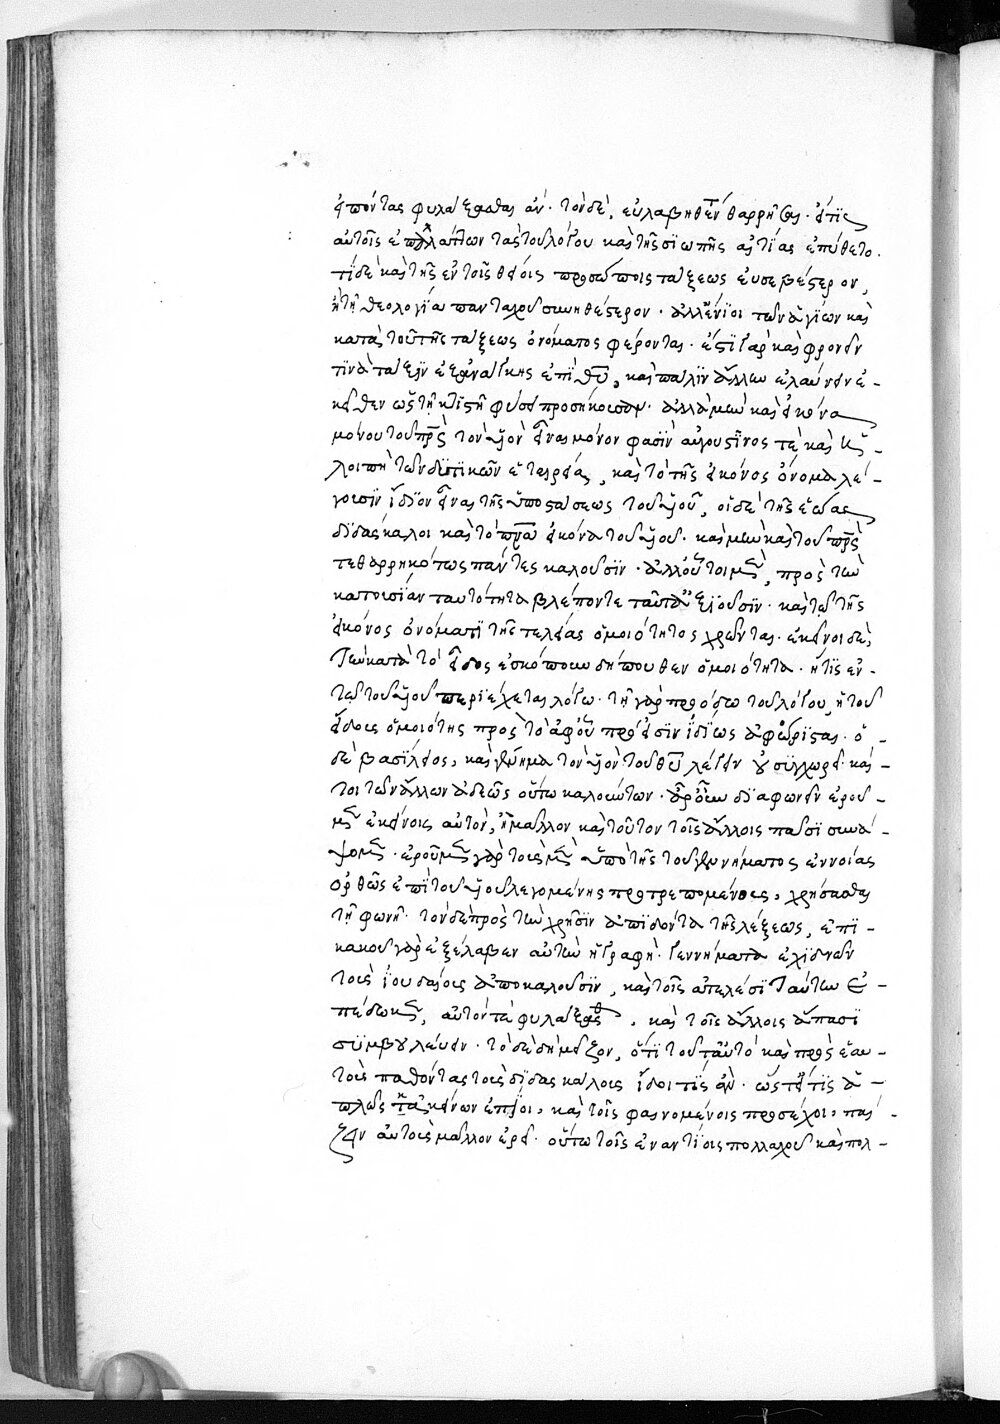 εἰπόντας φυλάξασθαι ἄν· τὸν δὲ, εὐλαβηθέντα θαρρῆσαι· εἴ τις
αὐτοῖς ἐπ' τὰς τοῦ λόγου καὶ τῆς σιωπῆς αἰτίας ἐπύθετο.
τί δὲ καὶ τῆς ἐν τοῖς θείοις προσώποις τάξεως εὐσεβέστερον,
ἢ τῇ θεολογίᾳ πανταχοῦ συνηθέστερον· ἀλλ' ἔνιοι τῶν ἁγίων καὶ
κατὰ τοῦ τῆς τάξεως ὀνόματος φέρονται· ἔστι γὰρ καὶ φρονεῖν
τινὰ τάξιν ἐξ ἀνάγκης ἐπὶ θεοῦ, καὶ πάλιν ἄλλων ἐλαύνειν ἐ-
κεῖθεν ὡς τῇ κτιστῇ φύσει προσήκουσαν· ἀλλὰ μὴν καὶ εἰκόνα
μόνου τοῦ πρς τὸν υἱὸν εἶναι μόνον φασὶν αὐγουστῖνος τὲ καὶ ἡ
λοιπὴ τῶν δυτικῶν ἑταιρεία, καὶ τὸ τῆς εἰκόνος ὄνομα λέ-
γουσιν ἴδιον εἶναι τῆς ὑποστάσεως τοῦ υἱοῦ, οἱ δὲ τῆς ἑῴας
διδάσκαλοι καὶ τὸ πνα εἰκόνα τοῦ υἱοῦ· καὶ μὴν καὶ τοῦ πρς
τεθαρρηκότως πάντες καλοῦσιν· ἀλλ' οὗτοι μὲν, πρὸς τὴν
κατ' οὐσίαν ταυτότητα βλέποντε ταῦτα ἀξιοῦσιν· καὶ τῷ τῆς
εἰκόνος ὀνόματι τῆς τελείας ὁμοιότητος χρῶνται· ἐκεῖνοι δὲ,
τὴν κατὰ τὸ εἶδος ἐσκόπουν δήπουθεν ὁμοιότητα· ἥτις ἐν
τῷ τοῦ υἱοῦ περιέχεται λόγῳ· τῇ γὰρ προόδῳ τοῦ λόγου, ἡ τοῦ
εἴδους ὁμοιότης πρὸς τὸ ἀφ' οὗ πρόεισιν ἰδίως ἀφώρισται· ὁ
δὲ βασίλειος, καὶ γέννημα τὸν υἱὸν τοῦ θυ λέγειν οὐ συγχωρεῖ· καί-
τοι τῶν ἄλλων ἀδεῶς οὕτω καλούντων· ἆρ' οὖν διαφωνεῖν ἐροῦ-
μεν ἐκείνοις αὐτὸν, ἢ μᾶλλον καὶ τοῦτον τοῖς ἄλλοις πᾶσι συνά-
ψομεν· ἐροῦμεν γὰρ τοὺς μὲν ὑπὸ τῆς τοῦ γεννήματος ἐννοίας
ὀρθῶς ἐπὶ τοῦ υἱοῦ λεγομένης προτρεπομένους, χρήσασθαι
τῇ φωνῇ· τὸν δὲ πρὸς τὴν χρῆσιν ἀπιδόντα τῆς λέξεως, ἐπὶ
κακοῦ γὰρ ἐξέλαβεν αὐτὴν ἡ γραφὴ· γεννήματα ἐχιδνῶν
τοὺς ἰουδαίους ἀποκαλοῦσιν, καὶ τοῖς ἀτελέσι ταύτην ἐ-
πέδωκεν, αὐτόν τε φυλάξασθαι, καὶ τοῖς ἄλλοις ἅπασι
συμβουλεύειν· τὸ δὲ δὴ μεῖζον, ὅτι τοῦτ' αὐτὸ καὶ πρὸς ἑαυ-
τοὺς παθόντας τοὺς διδασκάλους ἴδοι τὶς ἂν· ὥστ' εἴ τις ἁ-
πλῶς τὰ ἐκείνων ἐπίοι, καὶ τοῖς φαινομένοις προσέχοι, παί-
ζειν αὐτοὺς μᾶλλον ἐρεῖ· οὕτω τοῖς ἐναντίοις πολλαχοῦ καὶ πολ-